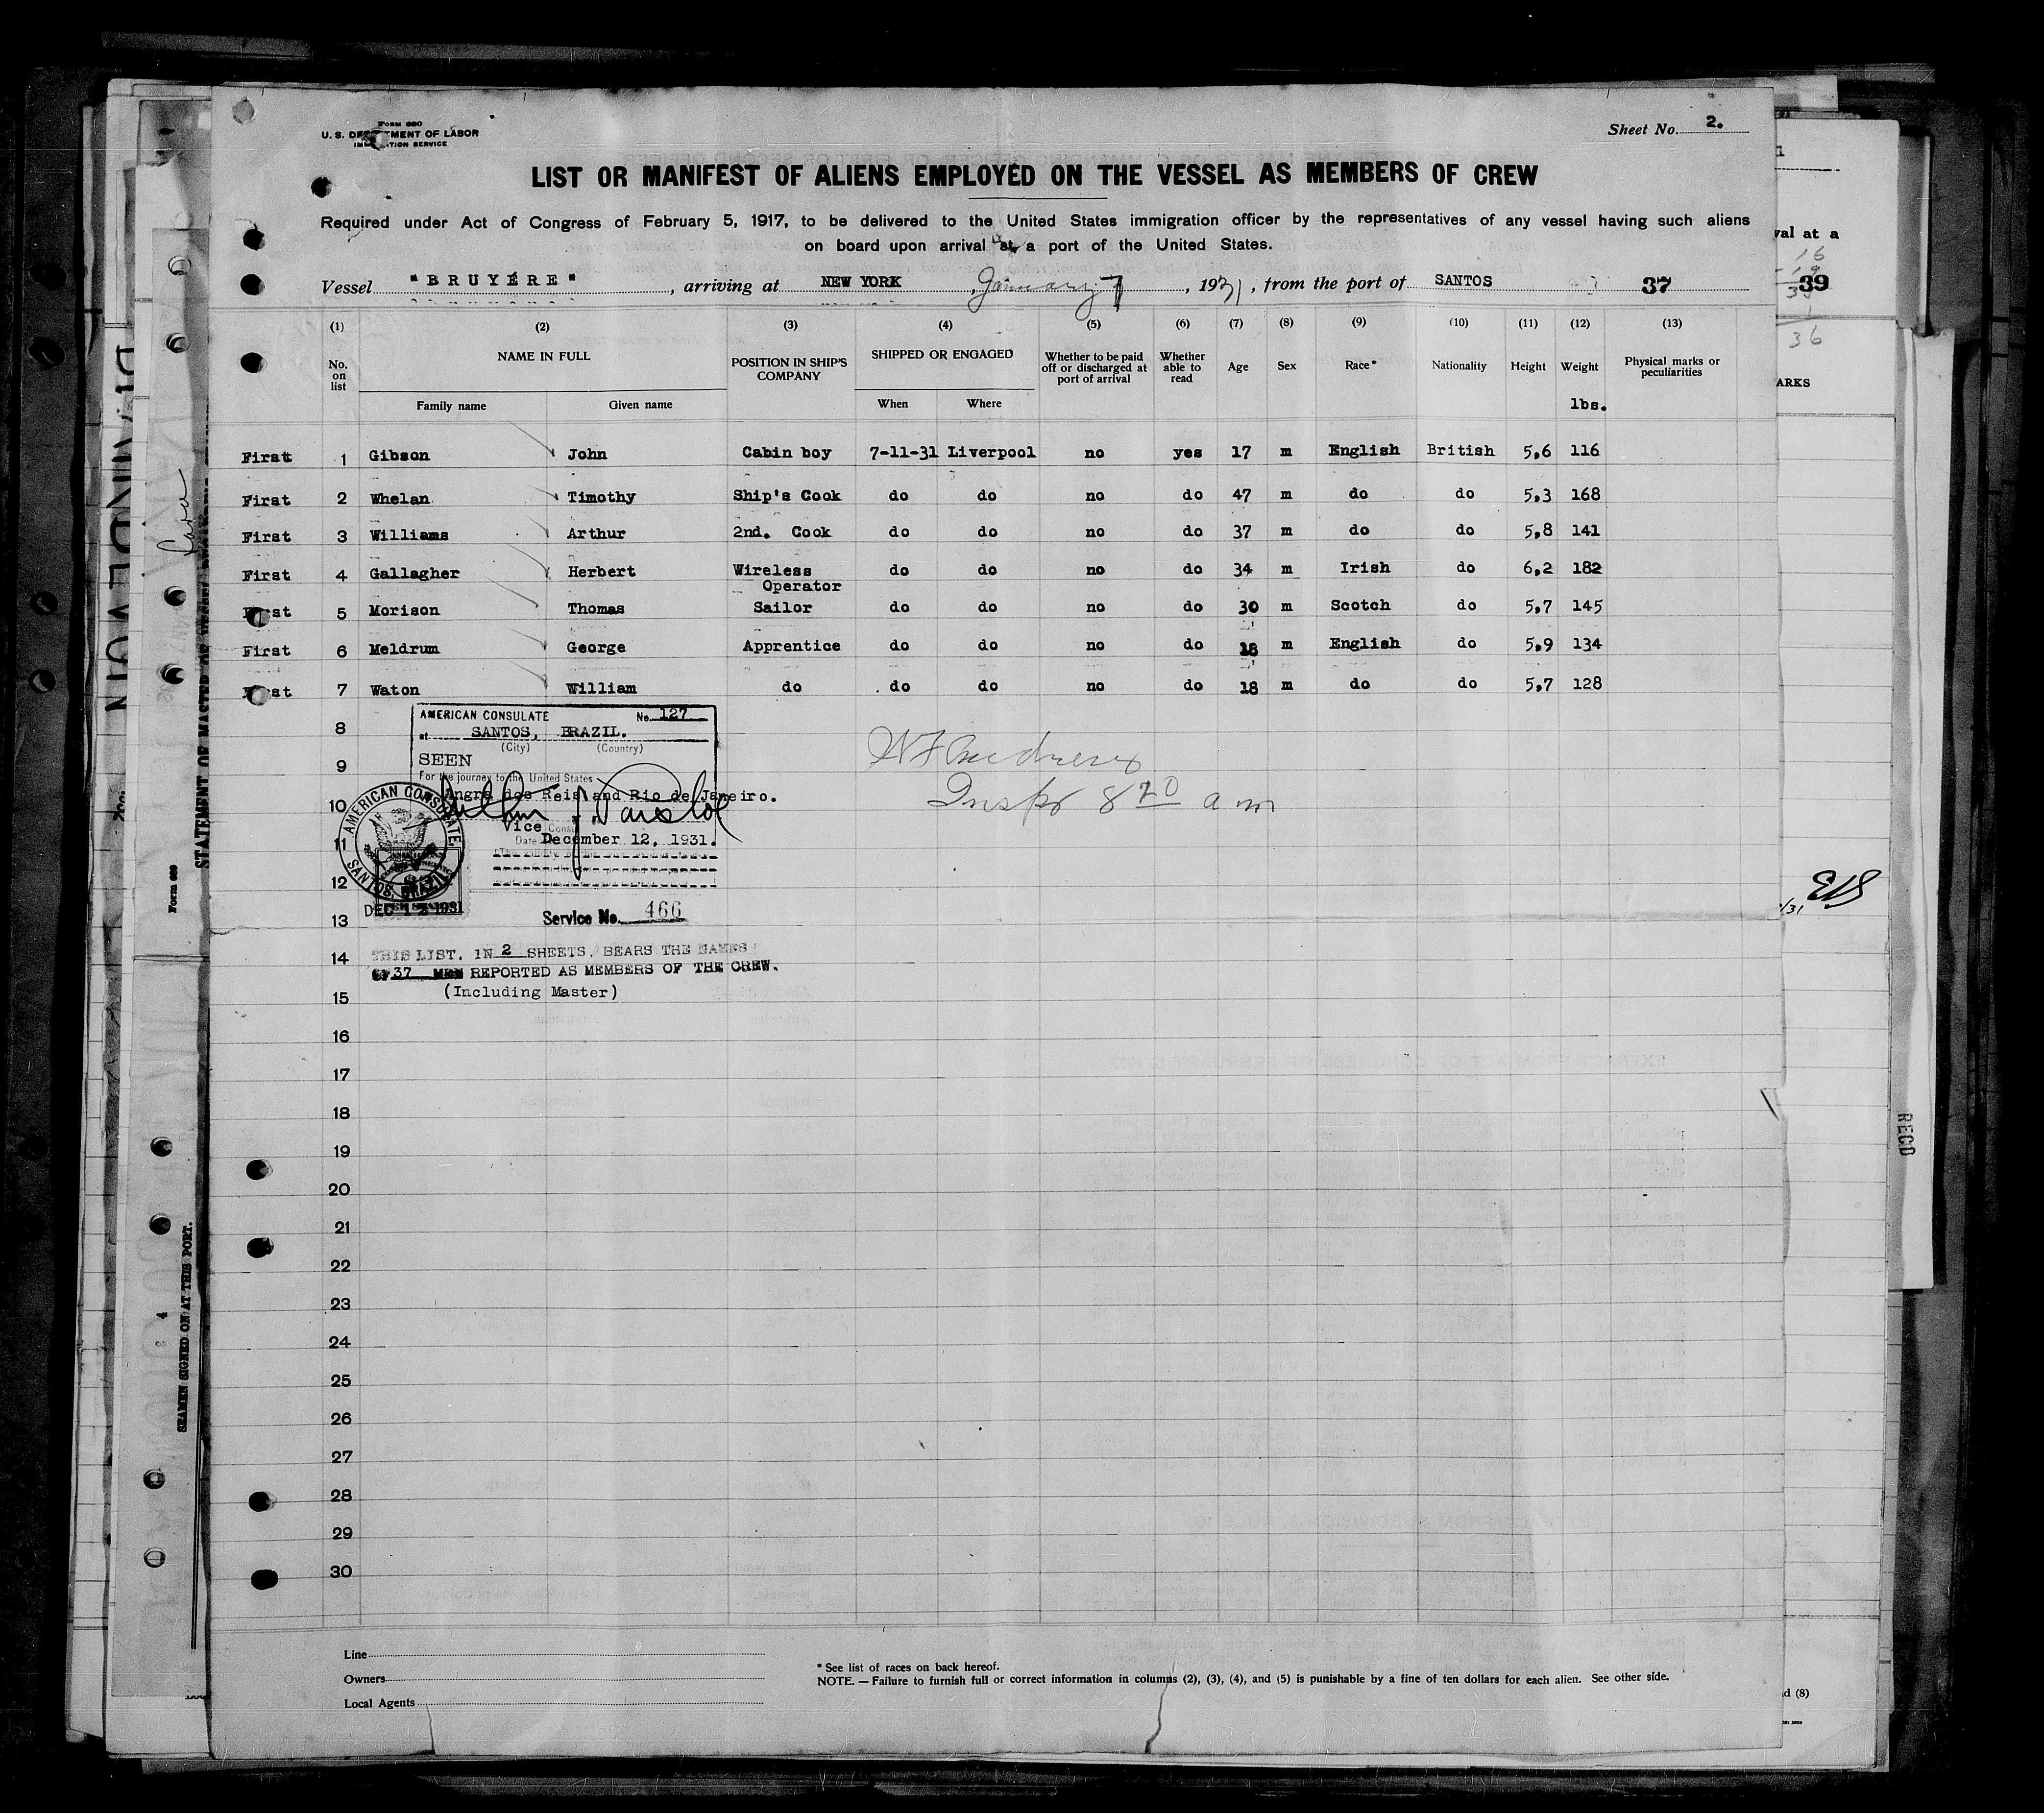 Form 680
U. S. DEPARTMENT OF LABOR
IMMIGRATION SERVICE
Sheet No. 2.
LIST OR MANIFEST OF ALIENS EMPLOYED ON THE VESSEL AS MEMBERS OF CREW
Required under Act of Congress of February 5, 1917, to be delivered to the United States immigration officer by the representatives of any vessel having such aliens
on board upon arrival at a port of the United States.
Vessel "BRUYÉRE", arriving at NEW YORK, January 7, 1931, from the port of SANTOS 37
(1) (2) (3) (4) (5) (6) (7) (8) (9) (10) (11) (12) (13)
No. on list NAME IN FULL POSITION IN SHIP'S COMPANY SHIPPED OR ENGAGED Whether to be paid off or discharged at port of arrival Whether able to read Age Sex Race* Nationality Height Weight Physical marks or peculiarities
Family name Given name When Where lbs.
First 1 Gibson John Cabin boy 7-11-31 Liverpool no yes 17 m English British 5,6 116
First 2 Whelan Timothy Ship's Cook do do no do 47 m do do 5,3 168
First 3 Williams Arthur 2nd. Cook do do no do 37 m do do 5,8 141
First 4 Gallagher Herbert Wireless Operator do do no do 34 m Irish do 6,2 182
First 5 Morison Thomas Sailor do do no do 30 m Scotch do 5,7 145
First 6 Meldrum George Apprentice do do no do 18 m English do 5,9 134
First 7 Waton William do do do no do 18 m do do 5,7 128
8
9
10
11
12
13
14
15
16
17
18
19
20
21
22
23
24
25
26
27
28
29
30
AMERICAN CONSULATE No. 127
at SANTOS, BRAZIL.
(City) (Country)
SEEN
For the journey to the United States
Angra dos Reis and Rio de Janeiro.
Vice Consul
Date December 12, 1931.
AMERICAN CONSULATE
SANTOS, BRAZIL
DEC 12 1931
Service No. 466
THIS LIST, IN 2 SHEETS, BEARS THE NAMES
OF 37 MEN REPORTED AS MEMBERS OF THE CREW.
(Including Master)
Inspr 8 20 a m
Line
Owners
Local Agents
* See list of races on back hereof.
NOTE. — Failure to furnish full or correct information in columns (2), (3), (4), and (5) is punishable by a fine of ten dollars for each alien. See other side.
val at a
16
19
39
36
ARKS
RECD
d (8)
Form 689
STATEMENT OF MASTER OF VESSEL
SEAMEN SIGNED ON AT THIS PORT.